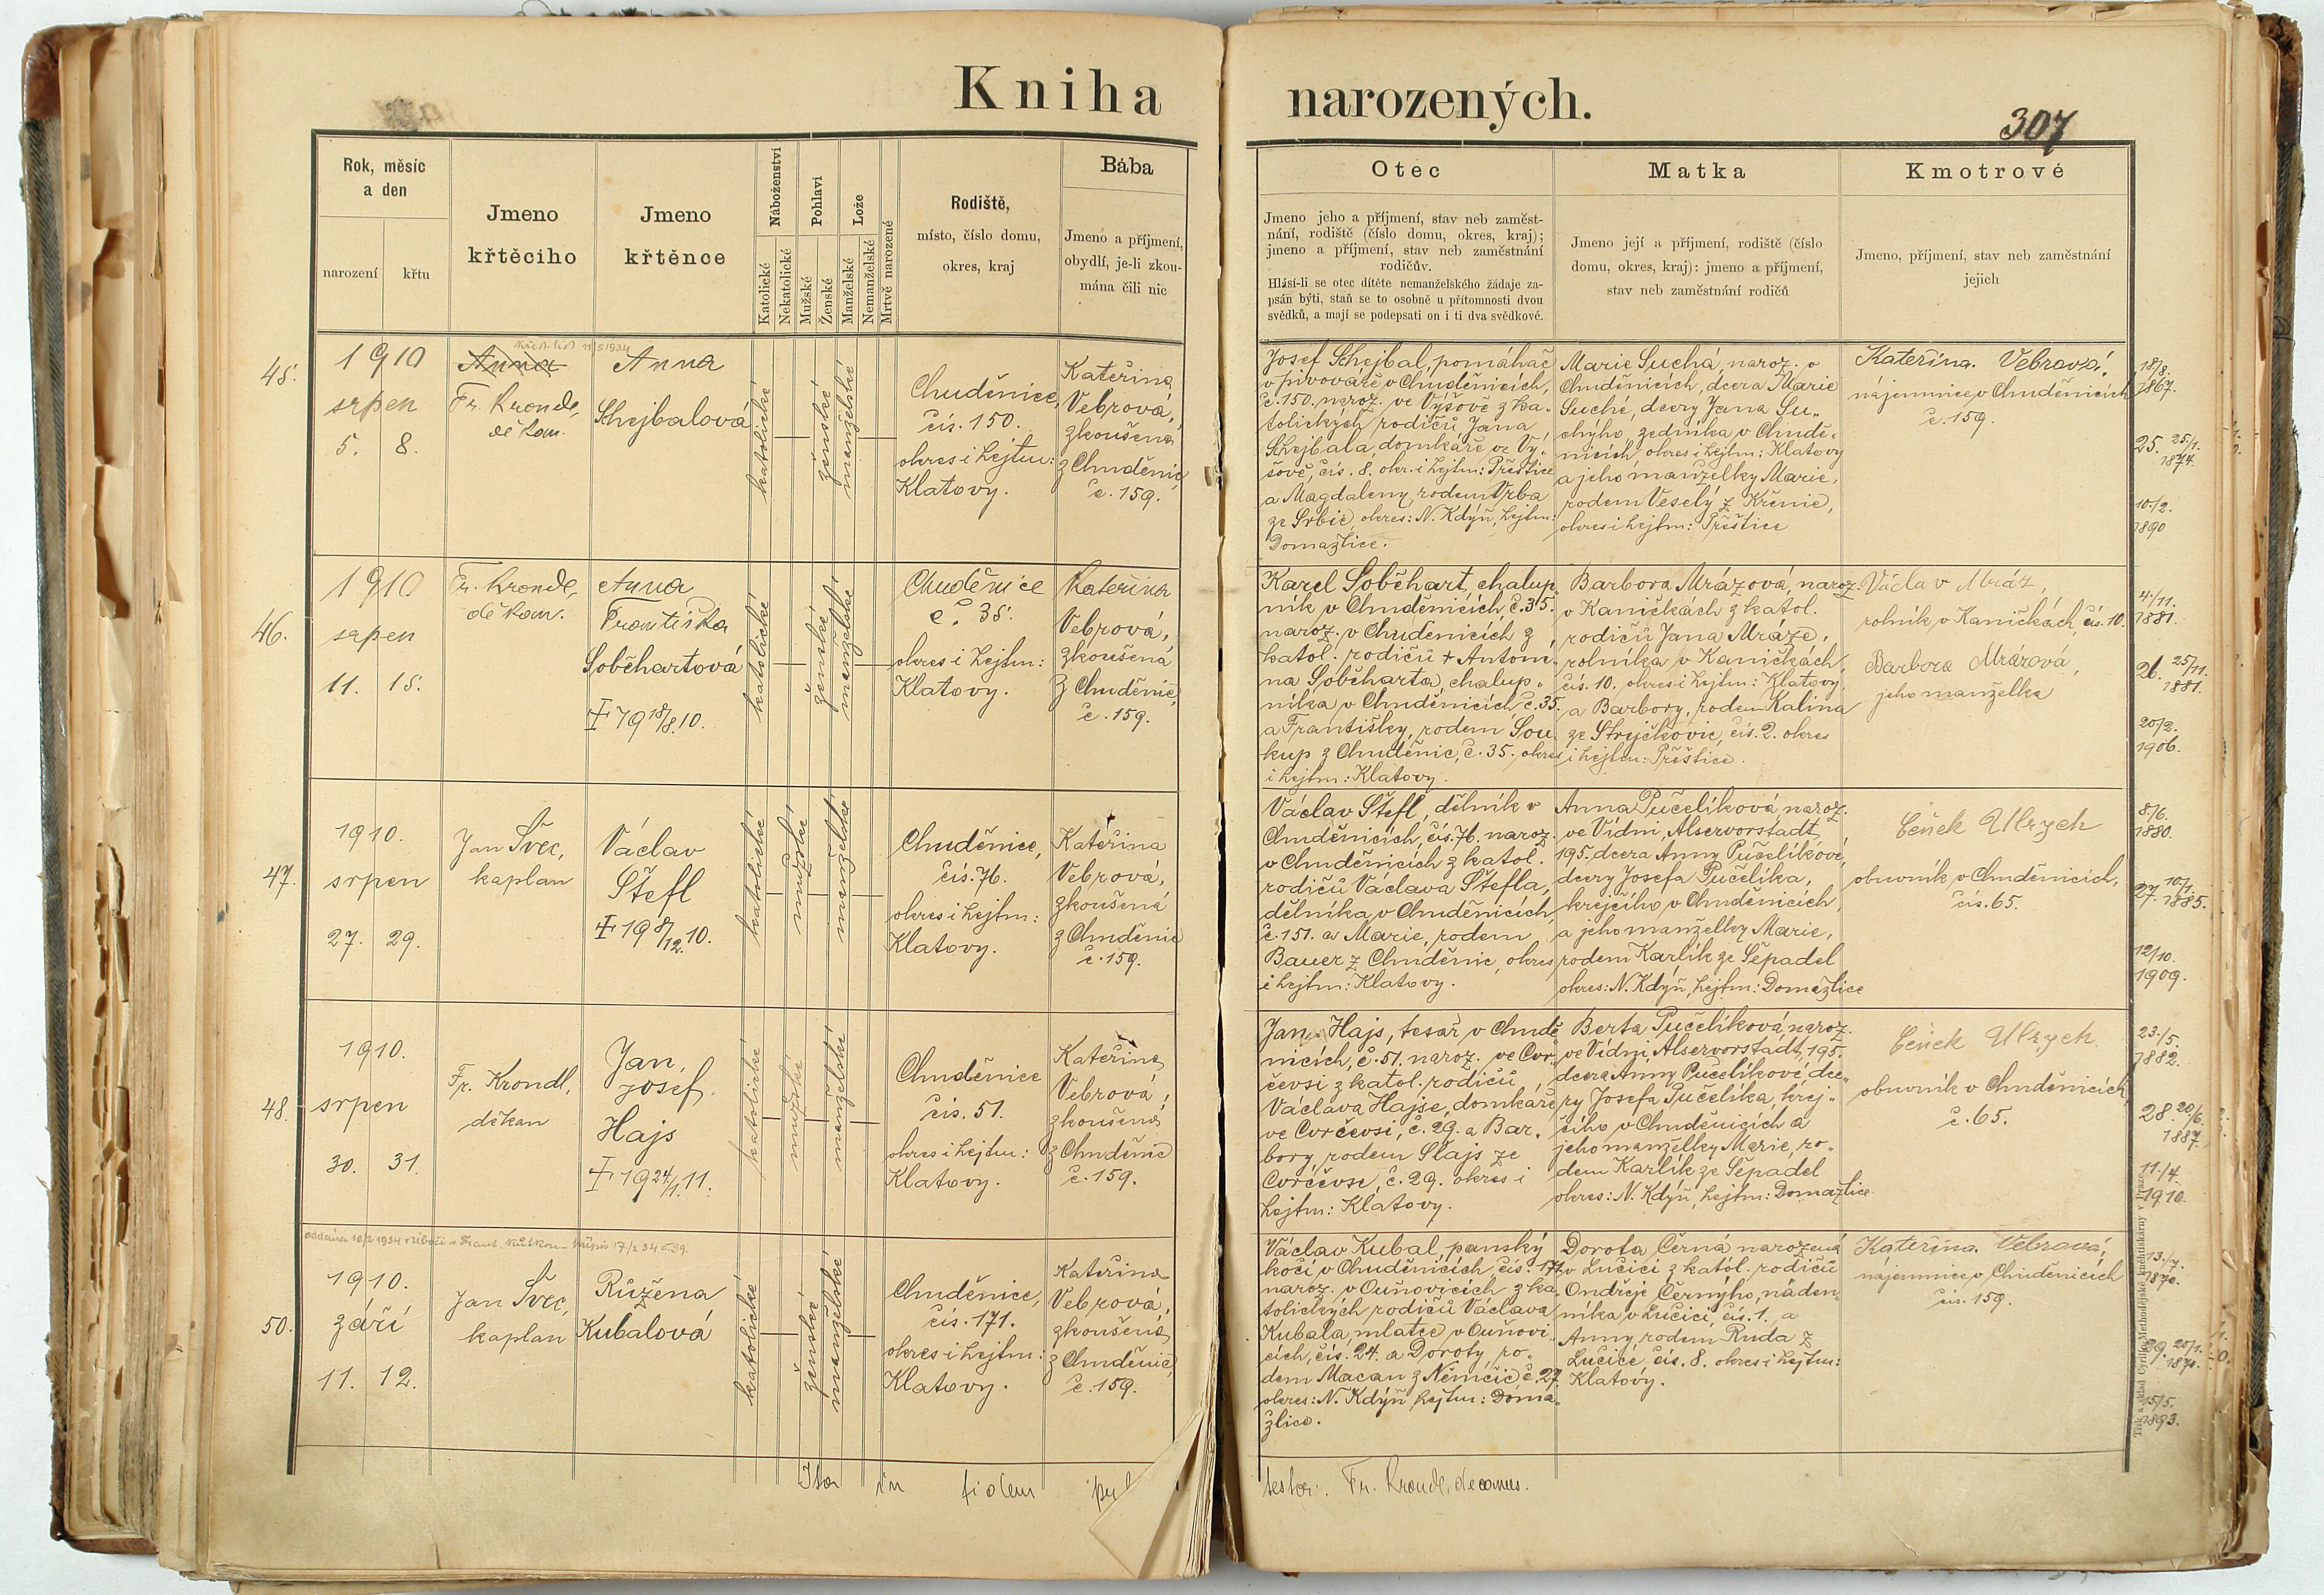 Kniha narozených.
307
Rok, měsíc
a den
narození
křtu
Jmeno
křtěcího
Jmeno
křtěnce
Náboženství
Katolické
Nekatolické
Pohlaví
Mužské
Ženské
Lože
Manželské
Nemanželské
Mrtvě narozené
Rodiště,
místo, číslo domu,
okres, kraj
Bába
Jmeno a příjmení,
obydlí, je-li zkou-
mána čili nic
Otec
Jmeno jeho a příjmení, stav neb zaměst-
nání, rodiště (číslo domu, okres, kraj);
jmeno a příjmení, stav neb zaměstnání
rodičův.
Hlásí-li se otec dítěte nemanželského žádaje za-
psán býti, staň se to osobně u přítomnosti dvou
svědků, a mají se podepsati on i ti dva svědkové.
Matka
Jmeno její a příjmení, rodiště (číslo
domu, okres, kraj): jmeno a příjmení,
stav neb zaměstnání rodičů
Kmotrové
Jmeno, příjmení, stav neb zaměstnání
jejich
45.
1910
srpen
5. 8.
Anna
Fr. Krondl,
děkan.
Anna
Schejbalová
katolické
ženské
manželské
Chuděnice,
čís. 150.
okres i hejtm:
Klatovy.
Kateřina
Vebrová,
zkoušená
z Chuděnic,
č. 159.
Josef Schejbal, pomáhač
v pivovaře v Chuděnicích,
č. 150. naroz. ve Výšově z ka-
tolických rodičů Jana
Schejbala, domkáře ve Vý-
šově, čís. 8. okr. i hejtm: Přeštice
a Magdaleny, rodem Vrba
ze Srbic, okres: N. Kdýň, hejtm:
Domažlice.
Marie Suchá, naroz. v
Chuděnicích, dcera Marie
Suché, dcery Jana Su-
chýho, zedníka v Chudě-
nicích okres i hejtm: Klatovy
a jeho manželky Marie,
rodem Veselý z Křenic,
okres i hejtm: Přeštice
Kateřina Vebrová,
nájemnice v Chuděnicích
č. 159.
18/8.
1867.
25. 25/1.
1874.
10/2.
1890
46.
1910
srpen
11. 15.
Fr. Krondl,
děkan.
Anna
Františka
Soběhartová
‡ 19 18/8. 10.
katolické
ženské
manželské
Chuděnice
č. 35.
okres i hejtm:
Klatovy.
Kateřina
Vebrová,
zkoušená
z Chuděnic,
č. 159.
Karel Soběhart, chalup-
ník v Chuděnicích č. 35.
naroz. v Chuděnicích z
katol. rodičů + Antoní-
na Soběharta, chalup-
níka v Chuděnicích, č. 35.
a Františky, rodem Sou-
kup z Chuděnic, č. 35. okres
i hejtm: Klatovy.
Barbora Mrázová, naroz.
v Kaničkách z katol.
rodičů Jana Mráze,
rolníka v Kaničkách,
čís. 10. okres i hejtm: Klatovy
a Barbory, rodem Kalina
ze Strejčkovic, čís. 2. okres
i hejtm: Přeštice.
Václav Mráz,
rolník v Kaničkách, čís. 10.
Barbora Mrázová,
jeho manželka
4/11.
1881.
26. 25/11.
1881.
20/2.
1906.
47.
1910.
srpen
27. 29.
Jan Švec,
kaplan
Václav
Štefl
‡ 19 8/12. 10.
katolické
mužské
manželské
Chuděnice,
čís. 76.
okres i hejtm:
Klatovy.
Kateřina
Vebrová,
zkoušená
z Chuděnic
č. 159.
Václav Štefl, dělník v
Chuděnicích, čís. 76. naroz.
v Chuděnicích z katol.
rodičů Václava Štefla,
dělníka v Chuděnicích,
č. 151. a Marie, rodem
Bauer z Chuděnic, okres
i hejtm: Klatovy.
Anna Pučelíková, naroz.
ve Vídni, Alservorstadt,
195. dcera Anny Pučelíkové,
dcery Josefa Pučelíka,
krejčího v Chuděnicích,
a jeho manželky Marie,
rodem Karlík ze Sepadel
okres: N. Kdýň, hejtm: Domažlice
Čeněk Ulrych
obuvník v Chuděnicích,
čís. 65.
8/6.
1880.
27. 10/1.
1885.
12/10.
1909.
48.
1910.
srpen
30. 31.
Fr. Krondl,
děkan
Jan,
Josef
Hajs
‡ 19 24/1. 11.
katolické
mužské
manželské
Chuděnice
čís. 51.
okres i hejtm:
Klatovy.
Kateřina
Vebrová,
zkoušená
z Chuděnic
č. 159.
Jan Hajs, tesař v Chudě-
nicích, č. 51. naroz. ve Cvr-
čevsi z katol. rodičů
Václava Hajse, domkáře
ve Cvrčevsi, č. 29. a Bar-
bory rodem Slajs ze
Cvrčevsi, č. 29. okres i
hejtm: Klatovy.
Berta Pučelíková, naroz.
ve Vídni, Alservorstadt, 195.
dcera Anny Pučelíkové, dce-
ry Josefa Pučelíka, krej-
čího v Chuděnicích a
jeho manželky Marie, ro-
dem Karlík ze Sepadel
okres: N. Kdýň, hejtm: Domažlice
Čeněk Ulrych
obuvník v Chuděnicích,
č. 65.
23/5.
1882.
28. 20/6.
1887.
11/4.
1910.
50.
1910.
září
11. 12.
Jan Švec,
kaplan
Růžena
Kubalová
katolické
ženské
manželské
Chuděnice,
čís. 171.
okres i hejtm:
Klatovy.
Kateřina
Vebrová,
zkoušená
z Chuděnic,
č. 159.
Václav Kubal, panský
kočí v Chuděnicích čís. 171.
naroz. v Ouňovicích z ka-
tolických rodičů Václava
Kubala, mlatce v Ouňovi-
cích, čís. 24. a Doroty, ro-
dem Macan z Němčic č. 27.
okres: N. Kdýň hejtm: Doma-
žlice.
Dorota Černá narozená
v Lučici z katol. rodičů
Ondřeje Černýho, náden-
níka v Lučici, čís. 1. a
Anny, rodem Ruda z
Lučice, čís. 8. okres i hejtm:
Klatovy.
Kateřina Vebrová,
nájemnice v Chuděnicích
čís. 159.
13/7.
1870.
29. 20/1.
1870.
15/5.
1893.
Ita in fidem
testor: Fr. Krondl, decanus.